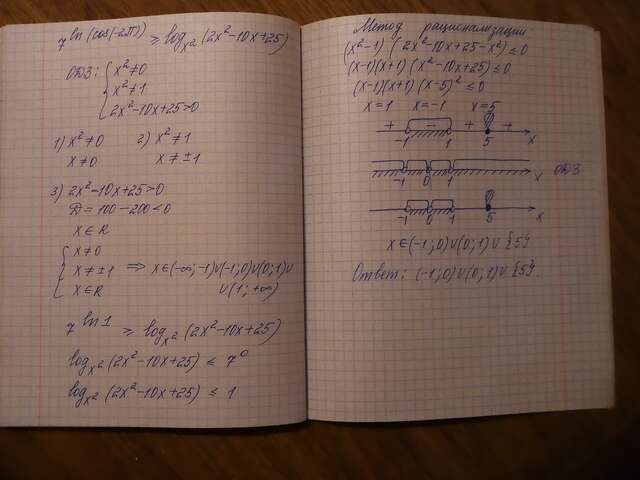 7^ln(cos(-2π)) ≥ log_x²(2x²-10x+25)
ОДЗ: { x²≠0
x²≠1
2x²-10x+25>0
1) x²≠0 2) x²≠1
x≠0 x≠±1
3) 2x²-10x+25>0
D=100-200<0
x∈R
{ x≠0
x≠±1 ⇒ x∈(-∞;-1)∪(-1;0)∪(0;1)∪
x∈R ∪(1;+∞)
7^ln1 ≥ log_x²(2x²-10x+25)
log_x²(2x²-10x+25) ≤ 7⁰
log_x²(2x²-10x+25) ≤ 1
Метод рационализации:
(x²-1)(2x²-10x+25-x²)≤0
(x-1)(x+1)(x²-10x+25)≤0
(x-1)(x+1)(x-5)²≤0
x=1 x=-1 x=5
+ - + +
-1 1 5 x
-1 0 1 x ОДЗ
-1 0 1 5 x
x∈(-1;0)∪(0;1)∪{5}
Ответ: (-1;0)∪(0;1)∪{5}.